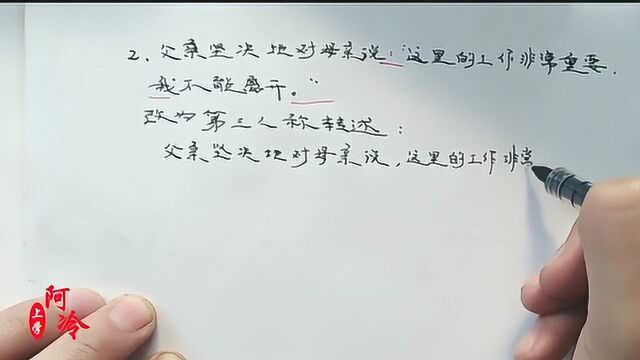 2. 父亲坚决地对母亲说:“这里的工作非常重要,
我不能离开。”
改为第三人称转述:
父亲坚决地对母亲说,这里的工作非常
阿冷
上学